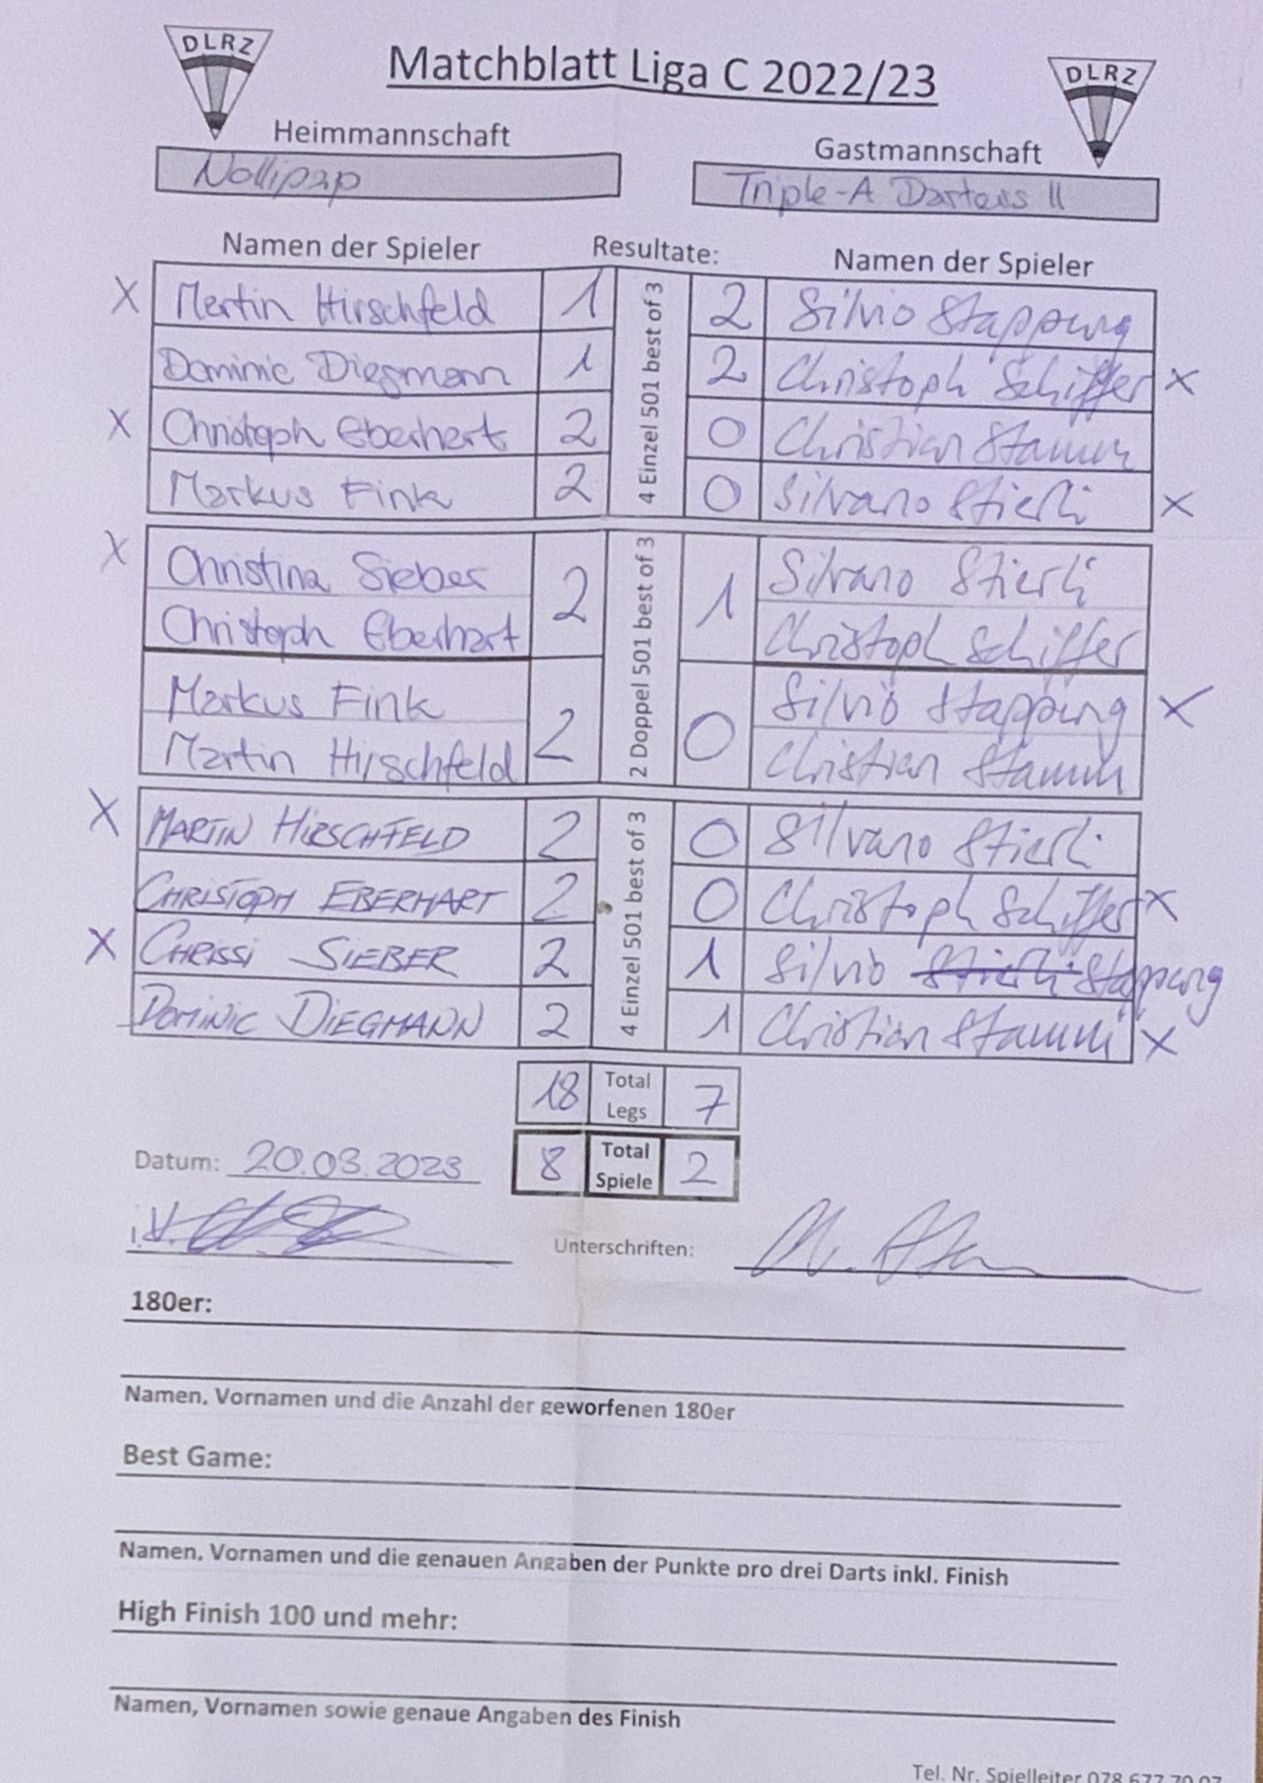 DLRZ
Matchblatt Liga C 2022/23
DLRZ
Heimmannschaft
Gastmannschaft
Nollipap
Triple-A Darters II
Namen der Spieler
Resultate:
Namen der Spieler
X Martin Hirschfeld 1 2 Silvio Stappung
Dominic Diegmann 1 2 Christoph Schiffer X
X Christoph Eberhart 2 0 Christian Stamm
Markus Fink 2 0 Silvano Stierli X
4 Einzel 501 best of 3
X Christina Sieber 2 1 Silvano Stierli
Christoph Eberhart Christoph Schiffer
Markus Fink 2 0 Silvio Stappung X
Martin Hirschfeld Christian Stamm
2 Doppel 501 best of 3
X MARTIN HIRSCHFELD 2 0 Silvano Stierli
CHRISTOPH EBERHART 2 0 Christoph Schiffer X
X CHRISSI SIEBER 2 1 Silvio Stierli Stappung
DOMINIC DIEGMANN 2 1 Christian Stamm X
4 Einzel 501 best of 3
18 Total Legs 7
8 Total Spiele 2
Datum: 20.03.2023
i.V.
Unterschriften:
180er:
Namen, Vornamen und die Anzahl der geworfenen 180er
Best Game:
Namen, Vornamen und die genauen Angaben der Punkte pro drei Darts inkl. Finish
High Finish 100 und mehr:
Namen, Vornamen sowie genaue Angaben des Finish
Tel. Nr. Spielleiter 078 677 70 07